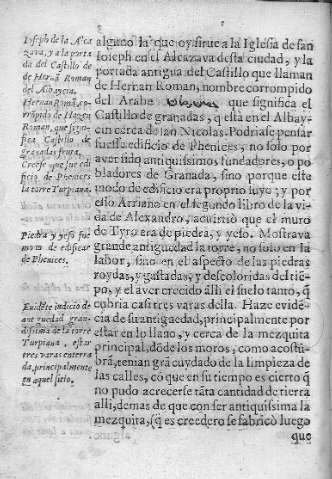 Ioseph de la Alca
zava, y a la porta
da del Castillo de
de Hernã Roman
del Albayzin.
Hernan Romã, co
rrõpido de Hazna
Roman, que signi
fica Castillo de
Granadas
Creese que fue edi
ficio de Phenices
la torre Turpiana.
Piedra y yeso fue
modo de edificar
de Phenices.
Evidẽte indicio de
antiguedad gran
dissima de la torre
Turpiana, estar
tres varas enterra
da, principalmente
en aquel sitio.
alguno la que oy sirue a la Iglesia de san
Ioseph en el Alcazava desta ciudad, y la
portada antigua del Castillo que llaman
de Hernan Roman, nombre corrompido
del Arabe que significa el
Castillo de granadas, q està en el Albay-
cin cerca de san Nicolas. Podriase pensar
fuesse edificio de Phenices, no solo por
aver sido antiquissimos fundadores, o po
bladores de Granada, sino porque este
modo de edificio era proprio suyo; y por
ello Arriano en el segundo libro de la vi-
da de Alexandro, advirtiò que el muro
de Tyro era de piedra, y yeso. Mostrava
grande antiguedad la torre, no solo en la
labor, sino en el aspecto de las piedras
roydas, y gastadas, y descoloridas del tiẽ-
po, y el aver crecido alli el suelo tanto, q̃
cubria casi tres varas della. Haze eviden
cia de su antiguedad, principalmente por
estar en lo llano, y cerca de la mezquita
principal, dõde los moros, como acostũ-
brã, tenian grã cuydado de la limpieza de
las calles, cõ que en su tiempo es cierto q̃
no pudo acrecerse tãta cantidad de tierra
alli, demas de que con ser antiquissima la
mezquita, (q̃ es creedero se fabricò luego
que